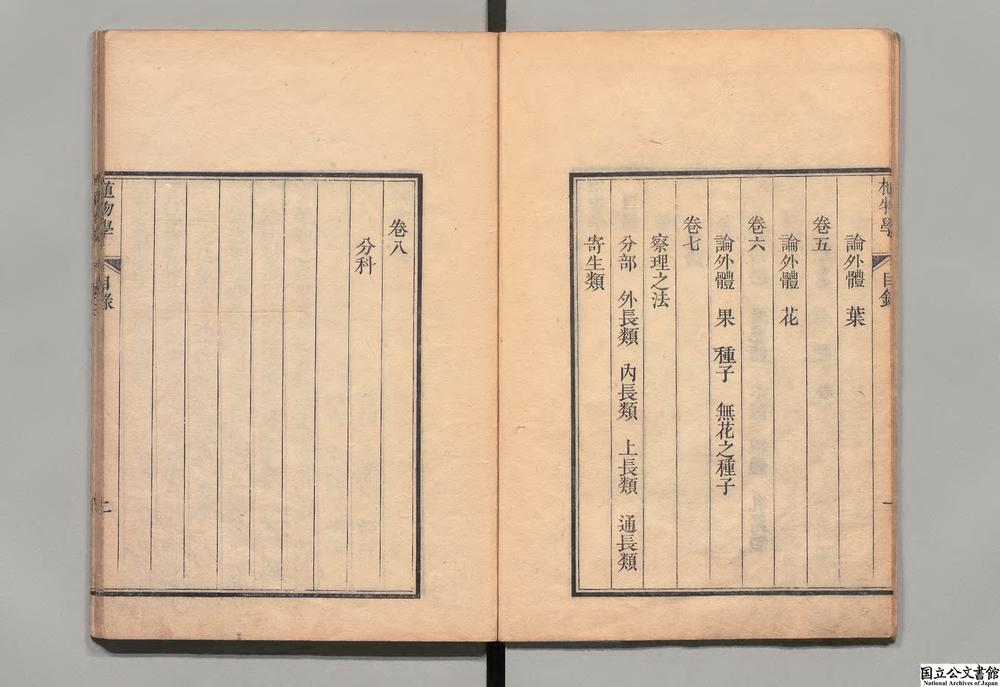 植物學
目錄
一
論外體 葉
卷五
論外體 花
卷六
論外體 果 種子 無花之種子
卷七
察理之法
分部 外長類 內長類 上長類 通長類
寄生類
卷八
分科
植物學
目錄
二
国立公文書館
National Archives of Japan